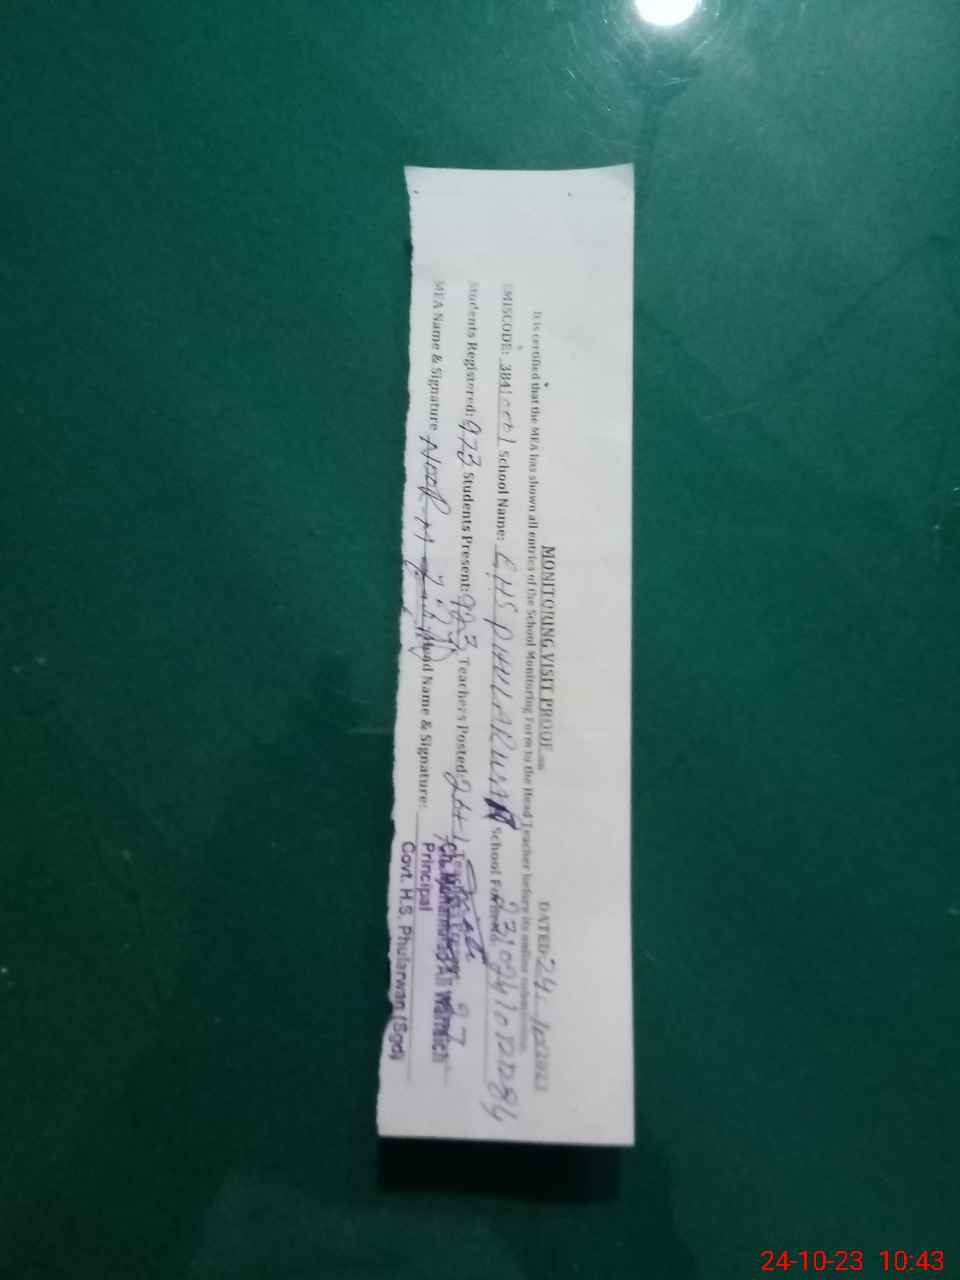 MONITORING VISIT PROOF
DATED: 24-10-2023
It is certified that the MEA has shown all entries of the School Monitoring Form to the Head Teacher before its online submission.
EMISCODE: School Name: GHS PHULARWAN School
Students Registered: 973 Students Present: 923 Teachers Posted: 26+1
MEA Name & Signature NOOR M Head Name & Signature:
Ch. Muhammad Ali Warraich
Principal
Govt. H.S. Phularwan (Sgd)
24-10-23 10:43